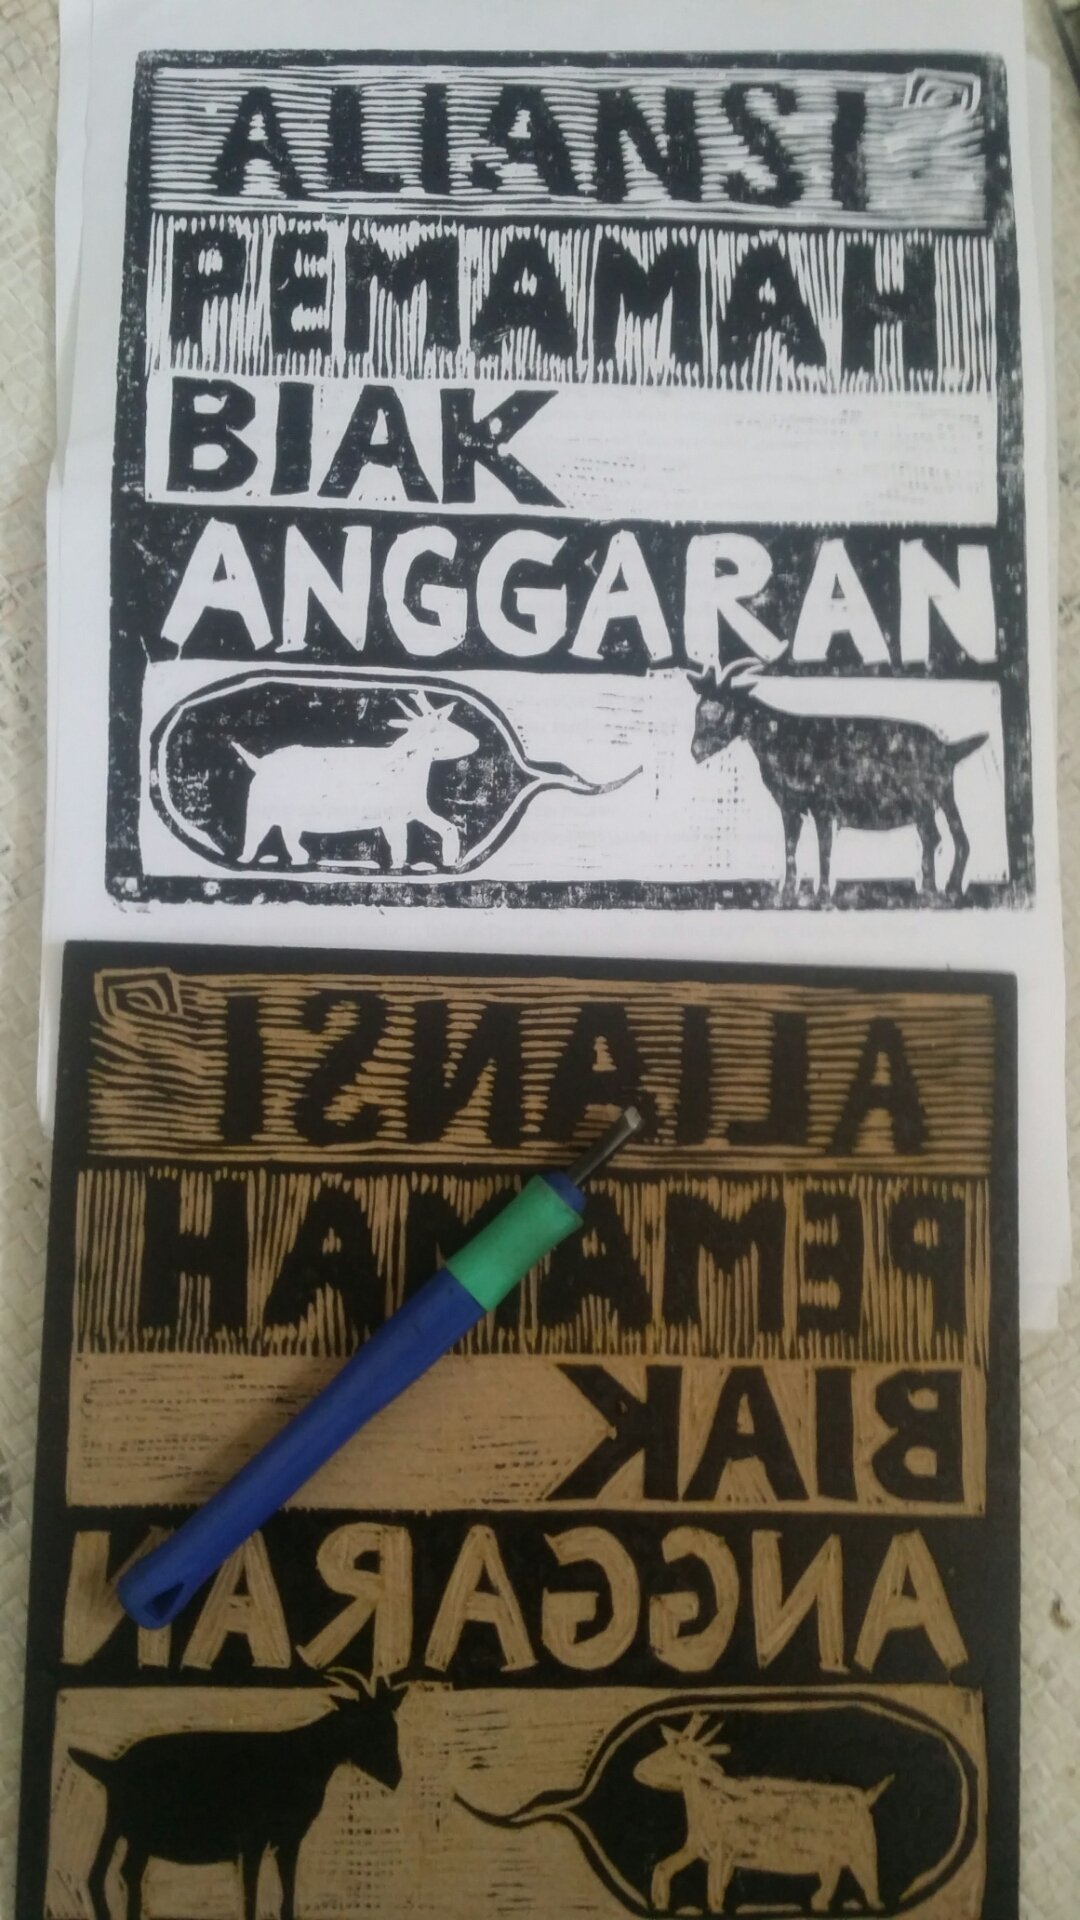 ALIANSI
PEMAMAH
BIAK
ANGGARAN
ALIANSI
PEMAMAH
BIAK
ANGGARAN